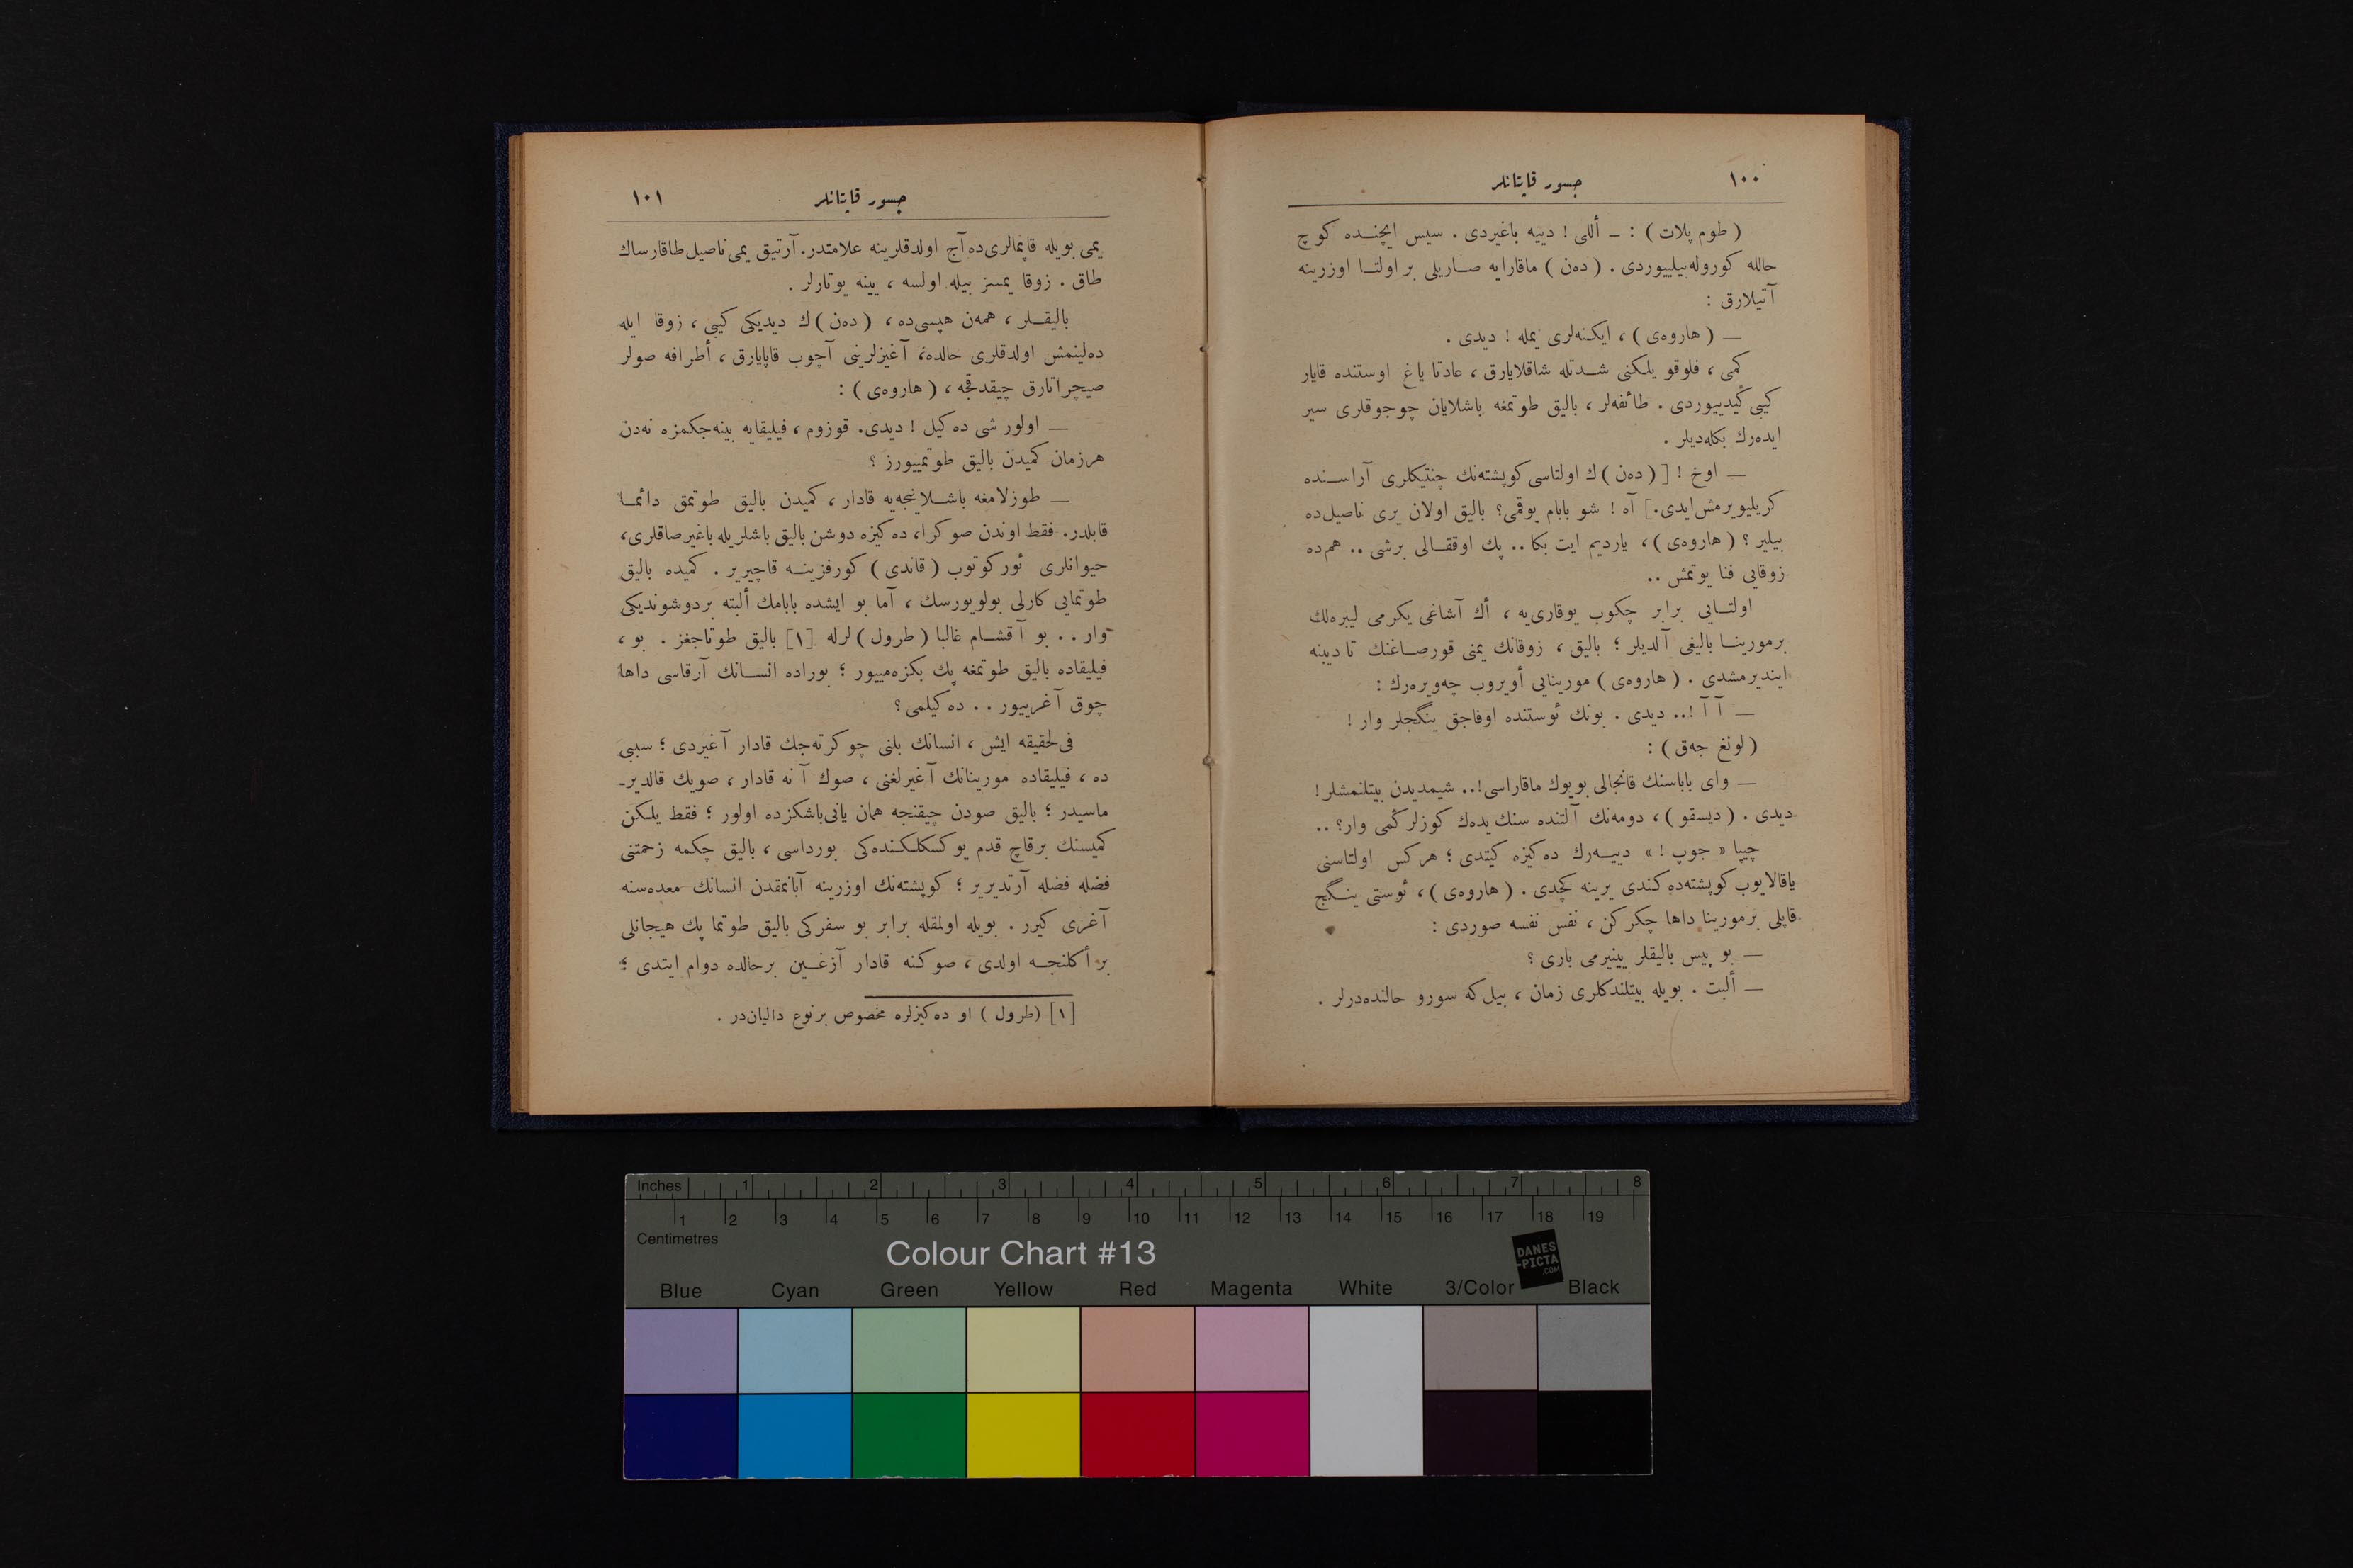 ١٠٠
جسور قاپتانلر
( طوم پلات ) : ـ أللی ! دییه باغیردی . سیس ایچنـده كوچ
حالله كوروله‌بیلییوردی . ( ده‌ن ) ماقارایه صـاریلی بر اولتـا اوزرینه
آتیلارق :
— ( هاروه‌ی ) ، ایكنه‌لری یمله ! دیدی .
كمی ، فلوقو یلكنی شـدتله شاقلایارق ، عادتا یاغ اوستنده قایار
كیبی كیدییوردی . طائفه‌لر ، بالیق طوتمغه باشلایان چوجوقلری سیر
ایده‌رك بكله‌دیلر .
— اوخ ! [ ( ده‌ن ) ك اولتاسی كوپشته‌نك چنتیكلری آراسـنده
كریلیویرمش‌ایدی.] آه ! شو بابام یوقمی؟ بالیق اولان یری ناصیل‌ده
بیلیر ؟ ( هاروه‌ی ) ، یاردیم ایت بكا .. پك اوققـالی برشی .. هم‌ده
زوقایی فنا یوتمش ..
اولتـایی برابر چكوب یوقاری‌یه ، أك آشاغی یكرمی لیبره‌لك
برمورینـا بالیغی آلدیلر ؛ بالیق ، زوقانك یمنی قورصـاغنك تا دیبنه
ایندیرمشدی . ( هاروه‌ی ) مورینایی أویروب چه‌ویره‌رك :
— آ آ !.. دیدی . بونك ئوستنده اوفاجق ینگجلر وار !
( لونغ جه‌ق ) :
— وای باباسنك قانجالی بویوك ماقاراسی!.. شیمدیدن بیتلنمشلر !
دیدی . ( دیسقو ) ، دومه‌نك آلتنده سنك یده‌ك كوزلركمی وار؟ ..
چیپا « جوپ ! » دییـه‌رك ده‌كیزه كیتدی ؛ هركس اولتاسنی
یاقالایوب كوپشته‌ده كندی یرینه كچدی . ( هاروه‌ی ) ، ئوستی ینـگج
قاپلی برمورینا داها چكركن ، نفس نفسه صوردی :
— بو پیس بالیقلر یینیرمی باری ؟
— ألبت . بویله بیتلندكلری زمان ، بیل‌كه سورو حالنده‌درلر .
جسور قاپتانلر
١٠١
یمی بویله قاپمالری‌ده آج اولدقلرینه علامتدر. آرتیق یمی ناصیل طاقارساك
طاق . زوقا یمسز بیله اولسه ، یینه یوتارلر .
بالیقـلر ، همه‌ن هپسی‌ده ، ( ده‌ن ) ك دیدیكی كیبی ، زوقا ایله
ده‌لینمش اولدقلری حالده، آغیزلرینی آچوب قاپایارق ، أطرافه صولر
صیچراتارق چیقدقجه ، ( هاروه‌ی ) :
— اولور شی ده‌كیل ! دیدی. قوزوم ، فیلیقایه بینه‌جكمزه نه‌دن
هرزمان كمیدن بالیق طوتمییورز ؟
— طوزلامغه باشـلانجه‌یه قادار ، كمیدن بالیق طوتمق دائمـا
قابلدر. فقط اوندن صوكرا، ده‌كیزه دوشن بالیق باشلریله باغیرصاقلری،
حیوانلری ئوركوتوب ( قاندی ) كورفزینـه قاچیریر . كمیده بالیق
طوتمایی كارلی بولویورسك ، آما بو ایشده بابامك ألبته بردوشوندیكی
وار .. بو آقشـام غالبا ( طرول ) لرله [١] بالیق طوتاجغز . بو ،
فیلیقاده بالیق طوتمغه پك بكزه‌مییور ؛ بوراده انسـانك آرقاسی داها
چوق آغرییور .. ده‌كیلمی؟
فی‌لحقیقه ایش ، انسانك بلنی چوكرته‌جك قادار آغیردی ؛ سببی
ده ، فیلیقاده مورینانك آغیرلغنی ، صوك آنه قادار ، صویك قالدیرـ
ماسیدر ؛ بالیق صودن چیقنجه همان یانی‌باشكزده اولور ؛ فقط یلكن
كمیسنك برقاچ قدم یوكسكلكنده‌كی بورداسی ، بالیق چكمه زحمتنی
فضله فضله آرتدیریر ؛ كوپشته‌نك اوزرینه آبانمقدن انسانك معده‌سنه
آغری كیرر . بویله اولمقله برابر بو سفركی بالیق طوتما پك هیجانلی
بر أكلنجـه اولدی ، صوكنه قادار آزغـین برحالده دوام ایتدی ؛
[١] (طرول ) او ده‌كیزلره مخصوص برنوع دالیان‌در .
Inches 1 2 3 4 5 6 7 8
1 2 3 4 5 6 7 8 9 10 11 12 13 14 15 16 17 18 19
Centimetres
Colour Chart #13
DANES
-PICTA
.COM
Blue Cyan Green Yellow Red Magenta White 3/Color Black